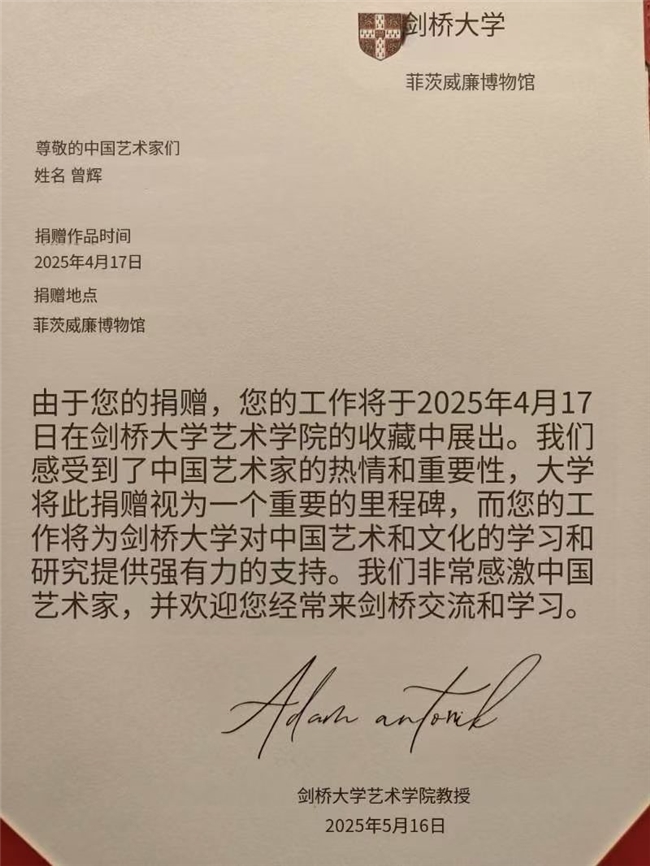 剑桥大学
菲茨威廉博物馆
尊敬的中国艺术家们
姓名 曾辉
捐赠作品时间
2025年4月17日
捐赠地点
菲茨威廉博物馆
由于您的捐赠，您的工作将于2025年4月17
日在剑桥大学艺术学院的收藏中展出。我们
感受到了中国艺术家的热情和重要性，大学
将此捐赠视为一个重要的里程碑，而您的工
作将为剑桥大学对中国艺术和文化的学习和
研究提供强有力的支持。我们非常感激中国
艺术家，并欢迎您经常来剑桥交流和学习。
Adam antonik
剑桥大学艺术学院教授
2025年5月16日